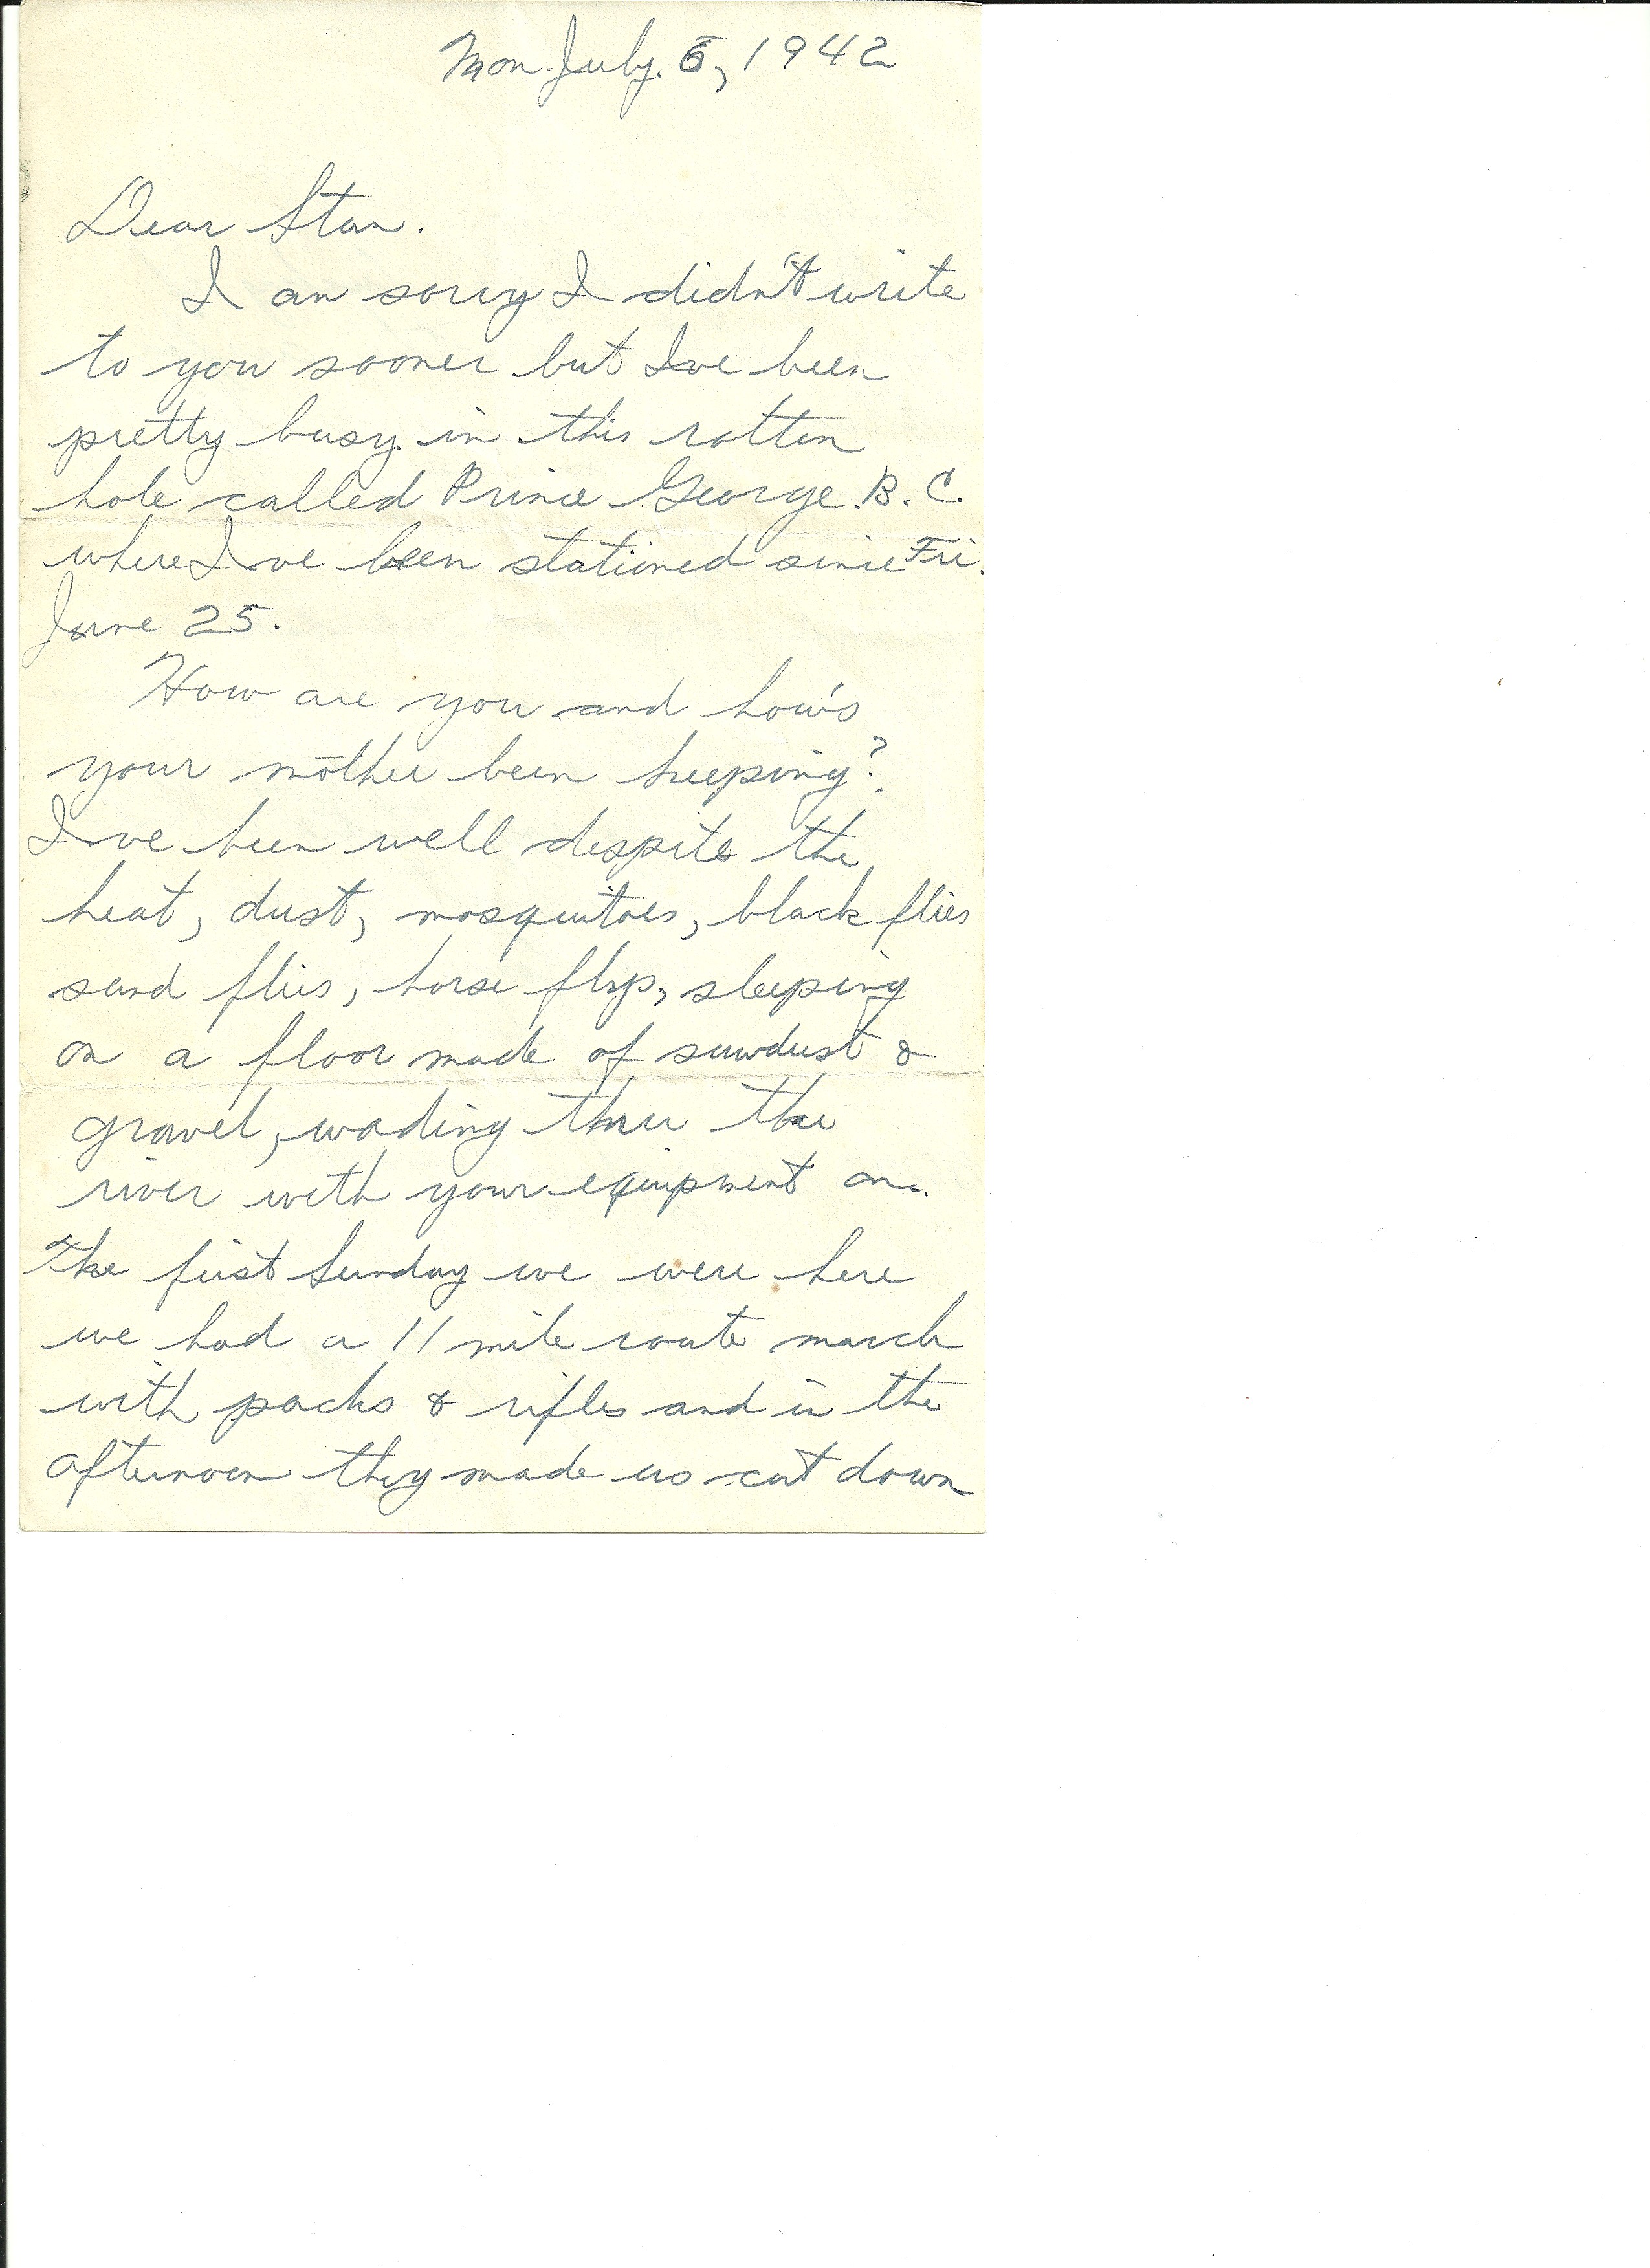 Mon. July. 6, 1942
Dear Stan.
I am sorry I didn't write
to you sooner but I've been
pretty busy in this rotten
hole called Prince George. B. C.
where I've been stationed since Fri.
June 25.
How are you and how's
your mother been keeping?
I've been well despite the
heat, dust, mosquitoes, black flies
sand flies, horse flys, sleeping
on a floor made of sawdust &
gravel, wading thru the
river with your equipment on.
The first Sunday we were here
we had a 11 mile route march
with packs & rifles and in the
afternoon they made us cut down